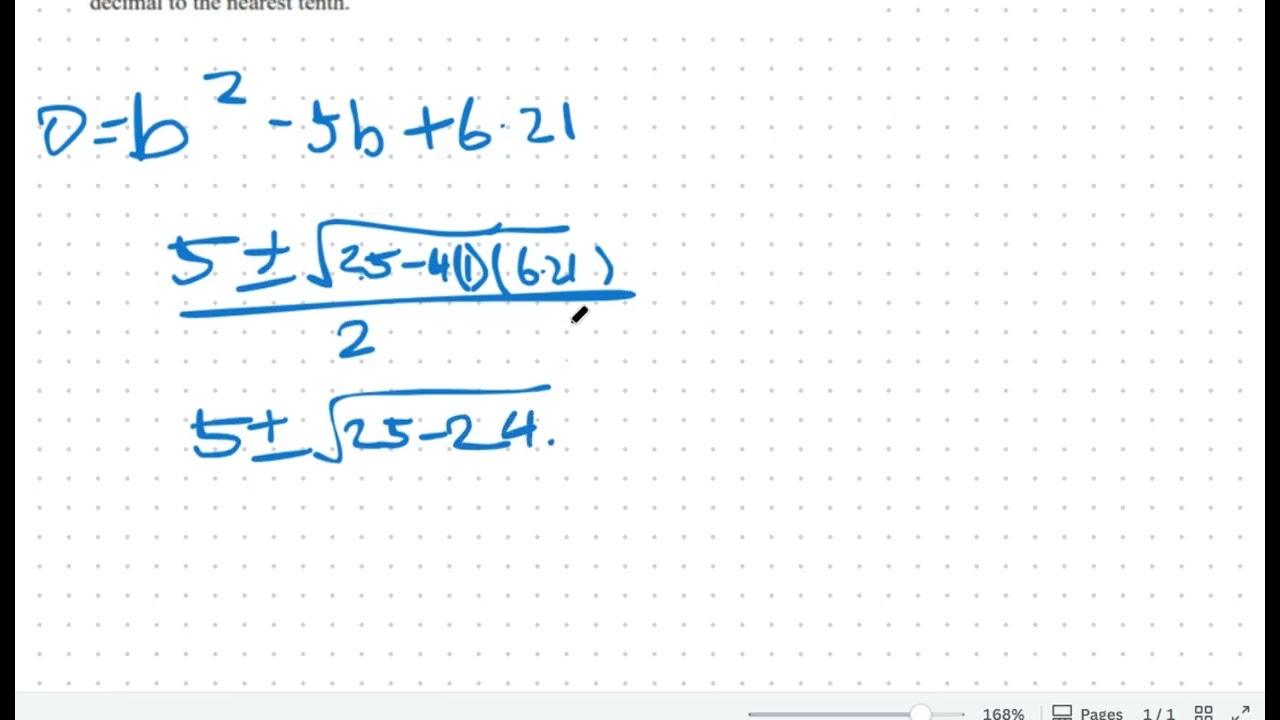 decimal to the nearest tenth.
0=b² -5b+6·21
5±√25-4(1)(6·21)
2
5±√25-24.
168% Pages 1/1